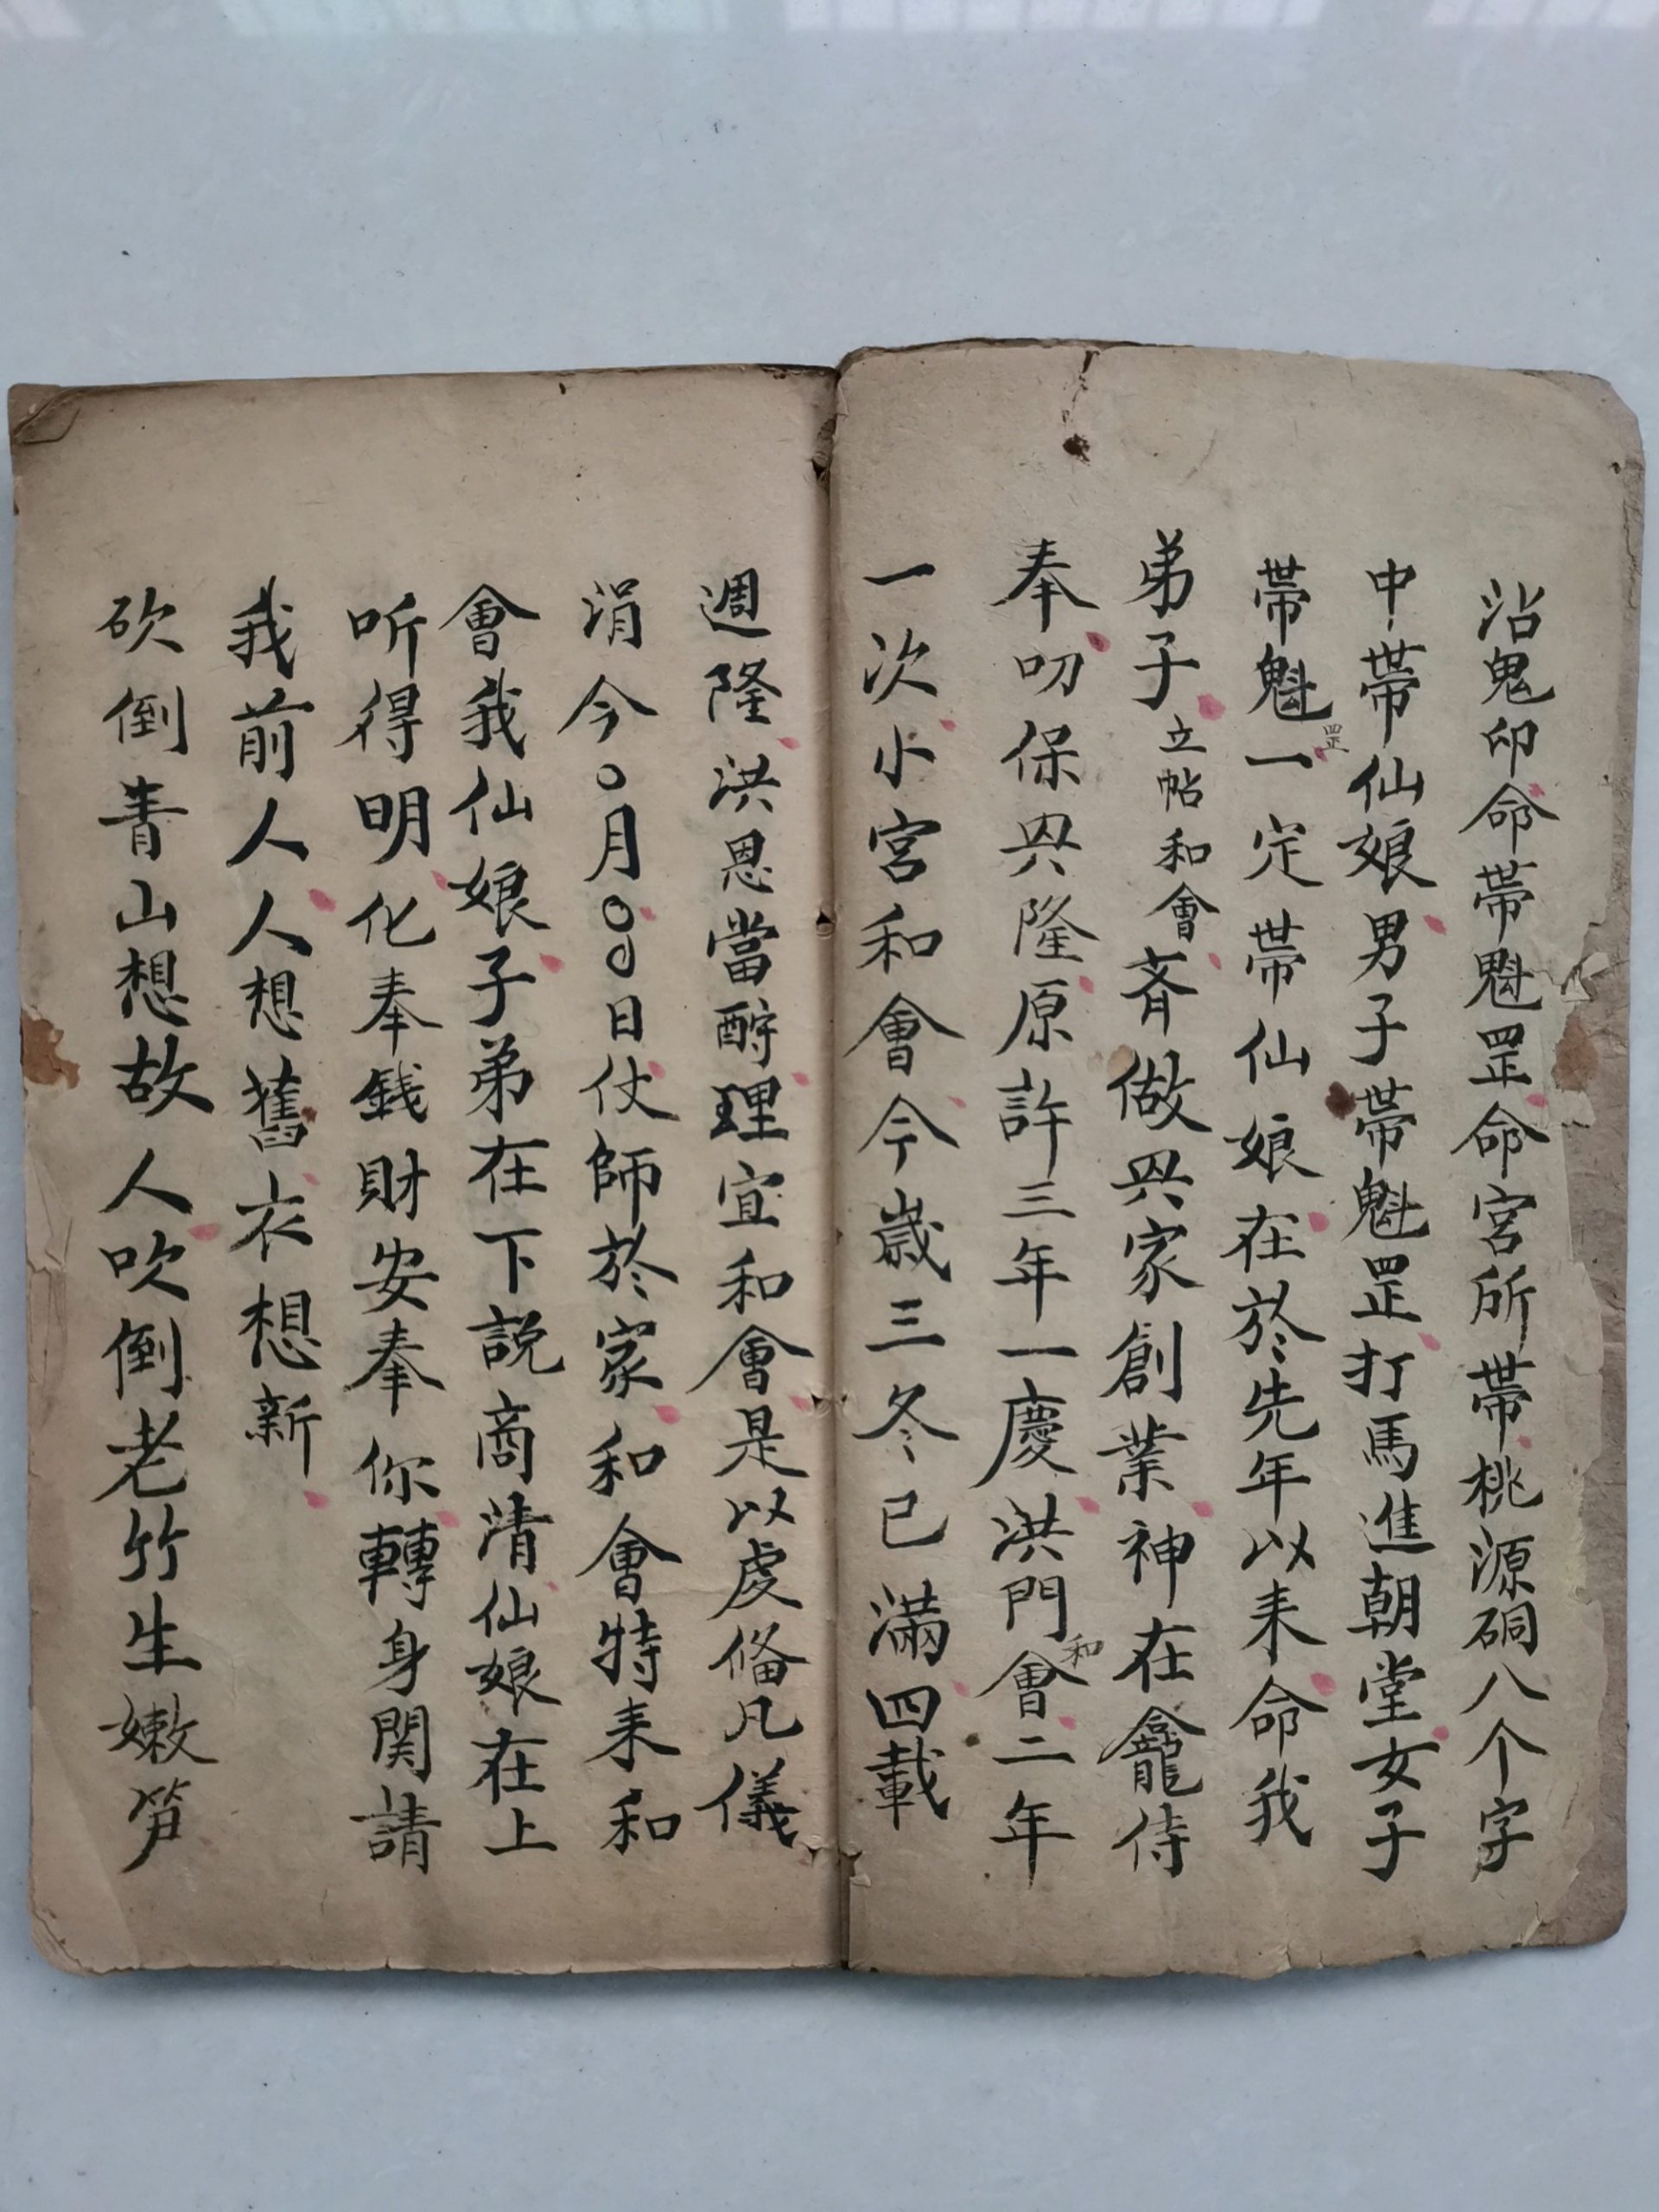 沾鬼卯命帯魁罡命宮所帯桃源硐八个字
中帯仙娘男子帯魁罡打馬進朝堂女子
帯魁罡一定帯仙娘在於先年以耒命我
弟子立帖和會斉做兴家創業神在龕侍
奉叨保兴隆原許三年一慶洪門和會二年
一次小宮和會今歲三冬已滿四載
週隆洪恩當酧理宜和會是以虔俻凡儀
涓今○月○○日仗師於家和會特耒和
會我仙娘子弟在下説商清仙娘在上
听得明化奉錢財安奉你轉身関請
我前人人想舊衣想新
砍倒青山想故人吹倒老竹生嫩笋